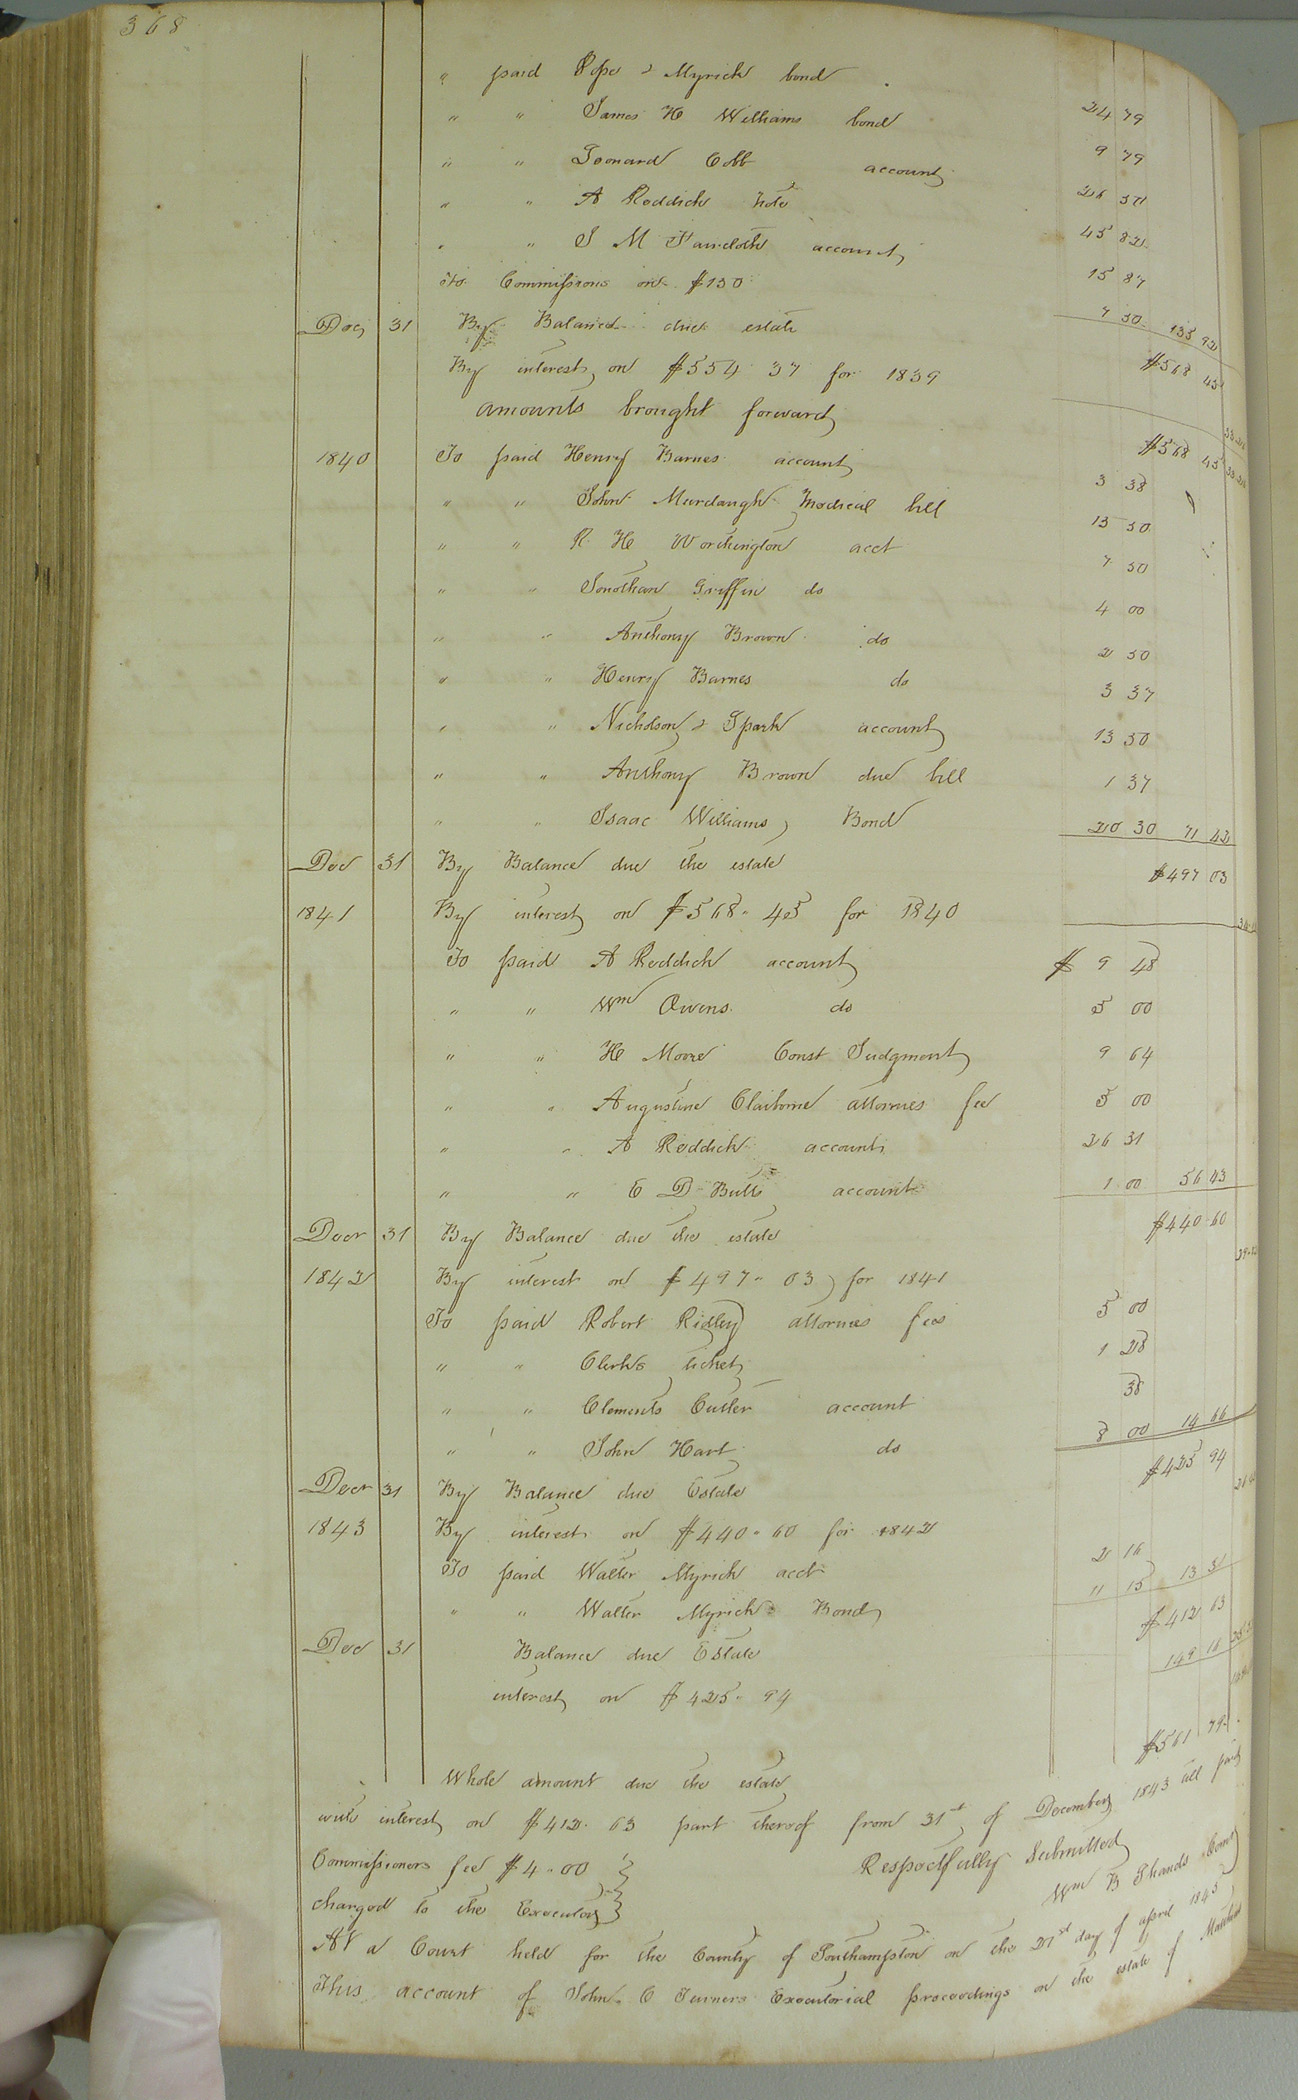 368
" paid Pope & Myrick bond 24 79
" " James H Williams bond 9 79
" " Leonard Cobb account 26 50
" " A Reddick note 45 82
" " J M Faucloth account 15 87
To Commissions on $150 7 50 135 92
Dec 31 By Balance due estate $568 45
By interest on $554 37 for 1839
amounts brought forward $568 45
1840 To paid Henry Barnes account 3 38
" " John Murdaugh Medical bill 15 50
" " R. H Worthington acct 7 50
" " Jonathan Griffin do 4 00
" " Anthony Brown do 2 50
" " Henry Barnes do 3 37
" " Nicholson & Spark account 13 50
" " Anthony Brown due bill 1 37
" " Isaac Williams Bond 20 30 71 42
Dec 31 By Balance due the estate $497 03
1841 By interest on $568.45 for 1840
To paid A Reddick account $ 9 48
" " Wm Owens do 5 00
" " H Moore Const Judgment 9 64
" " Augustine Claiborne attornies fee 5 00
" " A Reddick account 26 31
" " E D Butts account 1 00 56 43
Decr 31 By Balance due the estate $440 60
1842 By interest on $497.03 for 1841
To paid Robert Ridley attornies fees 5 00
" " Clerks ticket 1 28
" " Clements Cutler account 38
" " John Hart do 8 00 14 66
Decr 31 By Balance due Estate $425 94
1843 By interest on $440.60 for 1842
To paid Walter Myrick acct 2 16
" " Walter Myrick Bond 11 15 13 31
Dec 31 Balance due Estate $412 63
interest on $425.94 149 16
$561 79
Whole amount due the estate
with interest on $412.63 part thereof from 31st of December 1843 all paid
Respectfully Submitted
Commissioners fee $4.00
Wm B Shands Comr
charged to the Executor
At a Court held for the County of Southampton on the 21st day of april 1845
This account of John C Turners Executorial proceedings on the estate of